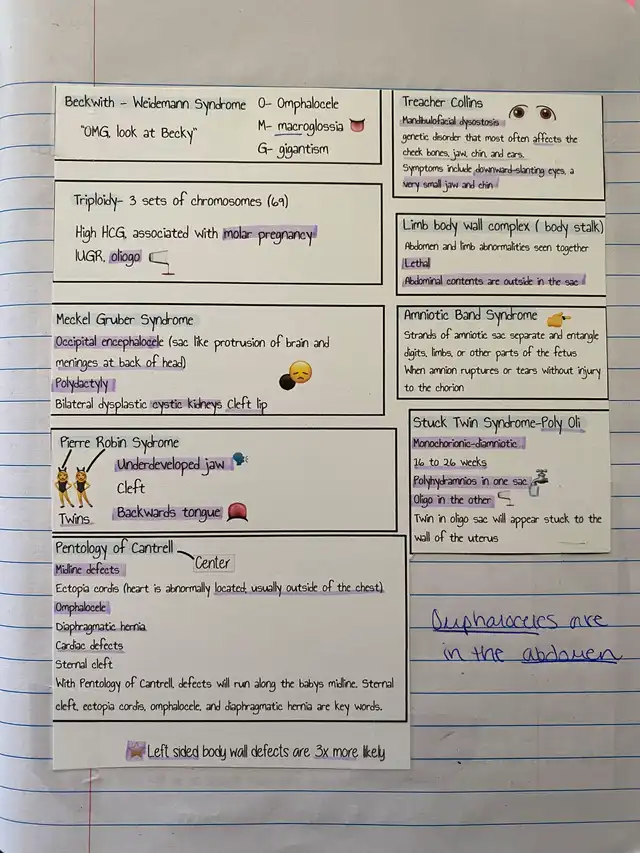 Beckwith - Weidemann Syndrome
"OMG, look at Becky"
O- Omphalocele
M- macroglossia
G- gigantism
Triploidy- 3 sets of chromosomes (69)
High HCG, associated with molar pregnancy
IUGR, oliogo
Meckel Gruber Syndrome
Occipital encephalocele (sac like protrusion of brain and
meninges at back of head)
Polydactyly
Bilateral dysplastic cystic kidneys Cleft lip
Pierre Robin Sydrome
Underdeveloped jaw
Cleft
Backwards tongue
Twins
Pentology of Cantrell
Center
Midline defects
Ectopia cordis (heart is abnormally located, usually outside of the chest)
Omphalocele
Diaphragmatic hernia
Cardiac defects
Sternal cleft
With Pentology of Cantrell, defects will run along the babys midline. Sternal
cleft, ectopia cordis, omphalocele, and diaphragmatic hernia are key words.
Left sided body wall defects are 3x more likely
Treacher Collins
Mandibulofacial dysostosis
genetic disorder that most often affects the
cheek bones, jaw, chin, and ears.
Symptoms include downward-slanting eyes, a
very small jaw and chin
Limb body wall complex ( body stalk)
Abdomen and limb abnormalities seen together
Lethal
Abdominal contents are outside in the sac
Amniotic Band Syndrome
Strands of amniotic sac separate and entangle
digits, limbs, or other parts of the fetus
When amnion ruptures or tears without injury
to the chorion
Stuck Twin Syndrome-Poly Oli
Monochorionic-diamniotic
16 to 26 weeks
Polyhydramnios in one sac
Oligo in the other
Twin in oligo sac will appear stuck to the
wall of the uterus
Omphaloceles are
in the abdomen